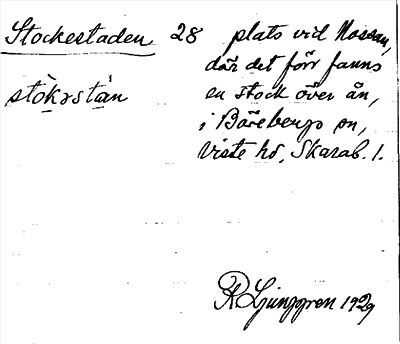 Stockestaden 28 plats vid Nossan,
där det förr fanns
stòkɜstàn en stock över ån,
i Bärebergs sn,
Viste hd, Skarab. l.
R Ljunggren 1929